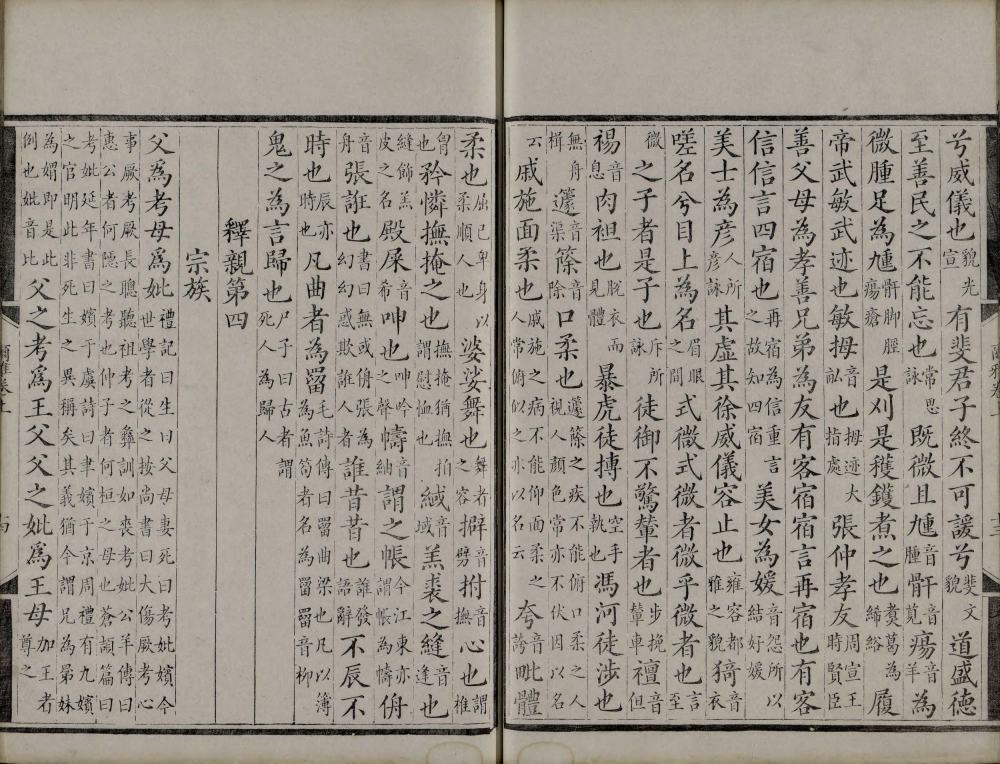 兮威儀也貌光宣有斐君子終不可諼兮斐文貌道盛德
至善民之不能忘也常思詠既微且尰音腫骭音莧瘍音羊為
微腫足為尰骭脚脛瘍瘡是刈是穫鑊煮之也煮葛為絺綌履
帝武敏武迹也敏拇也拇迹大指處張仲孝友周宣王時賢臣
善父母為孝善兄弟為友有客宿宿言再宿也有客
信信言四宿也再宿為信重言之故知四宿美女為媛音怨所以結好媛
美士為彦人所彦詠其虛其徐威儀容止也雍容都雅之貌猗音衣
嗟名兮目上為名眉眼之間式微式微者微乎微者也言至
微之子者是子也斥所詠徒御不驚輦者也步挽輦車襢音但
裼音息肉袒也脫衣而見體暴虎徒搏也空手執也馮河徒涉也
無舟楫籧音渠篨音除口柔也籧篨之疾不能俯口柔之人視人顏色常亦不伏因以名
云戚施面柔也戚施之病不能仰面柔之人常俯似之亦以名云夸音誇毗體
柔也屈己卑身以柔順人也婆娑舞也舞者之容擗音劈拊音撫心也謂椎
胷也矜憐撫掩之也撫掩猶撫拍謂慰恤也緎音域羔裘之縫音逢也
縫飾羔皮之名殿屎呻也呻吟之聲幬音紬謂之帳今江東亦謂帳為幬侜
音舟張誑也書曰無或侜張為幻幻惑欺誑人者誰昔昔也誰發語辭不辰不
時也辰亦時也凡曲者為罶毛詩傳曰罶曲梁也凡以簿為魚笱者名為罶罶音柳
鬼之為言歸也尸子曰古者謂死人為歸人
釋親第四
宗族
父為考母為妣禮記曰生曰父母妻死曰考妣嬪今世學者從之按尚書曰大傷厥考心
事厥考厥長聰聽祖考之彝訓如喪考妣公羊傳曰惠公者何隱之考也仲子者何桓之母也蒼頡篇曰
考妣延年書曰嬪于虞詩曰聿嬪于京周禮有九嬪之官明此非死生之異稱矣其義猶今謂兄為晜妹
為媦即是此例也妣音比父之考為王父父之妣為王母加王者尊之